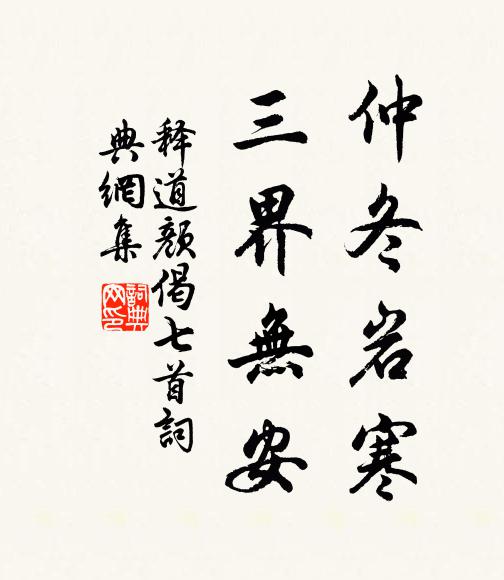 仲冬岩寒
三界無安
释道颜偈七首詞
典網集
詞典
网印